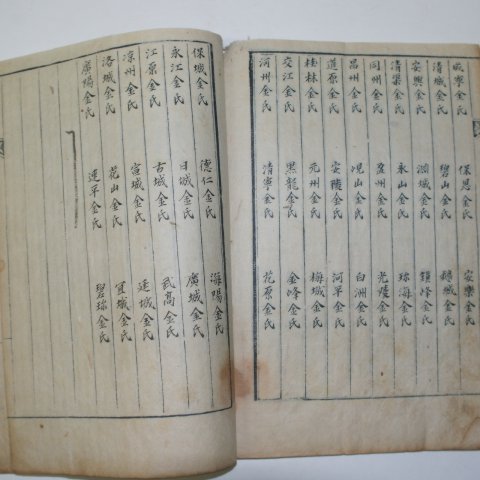 咸寧金氏 保恩金氏 安樂金氏
清城金氏 碧山金氏 鶴城金氏
安興金氏 潤城金氏 鎭峰金氏
清渠金氏 永山金氏 珎海金氏
同州金氏 盈州金氏 光陵金氏
昌州金氏 峴山金氏 白洲金氏
道原金氏 安陵金氏 河平金氏
桂林金氏 元州金氏 梅城金氏
交江金氏 黑龍金氏 金峰金氏
河州金氏 清寧金氏 花原金氏
保城金氏 德仁金氏 海陽金氏
永江金氏 日城金氏 廣城金氏
江原金氏 古城金氏 武高金氏
凉州金氏 宣城金氏 延城金氏
洛城金氏 花山金氏 宜城金氏
廣陽金氏 連平金氏 碧珎金氏